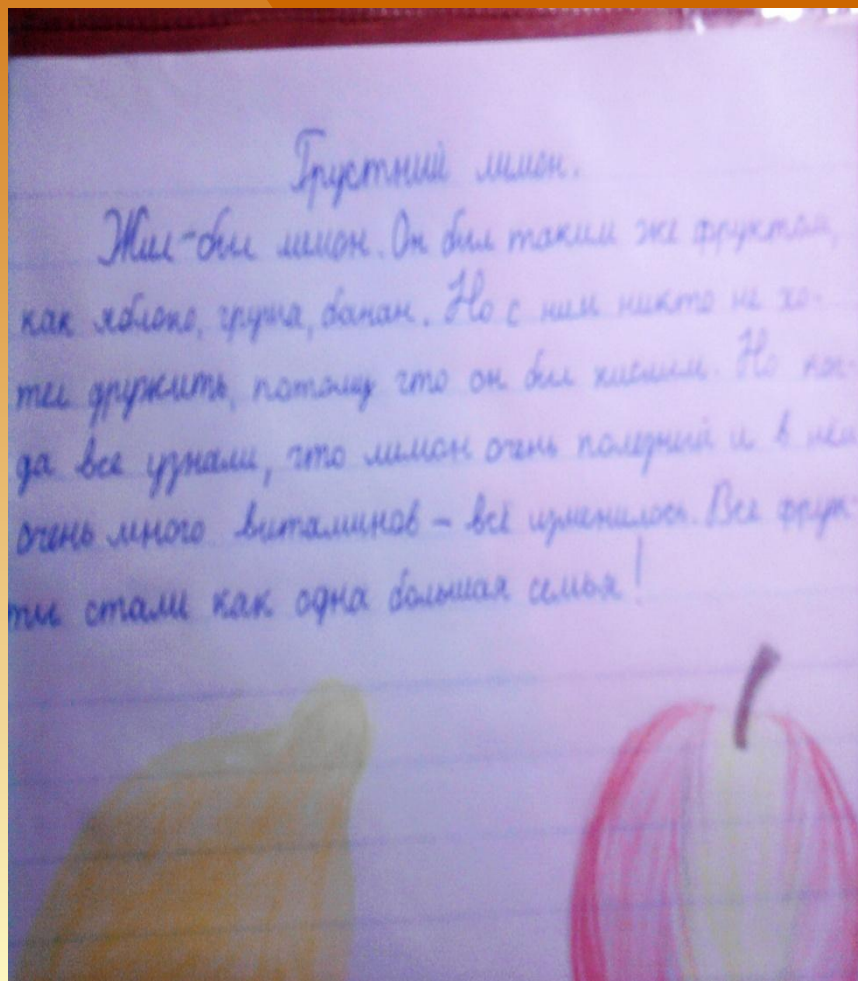 Грустний лимон.
Жил-бил лимон. Он бил таким же фруктом,
как яблоко, груша, банан. Но с ним никто не хо-
тел дружить, потому что он бил кислим. Но ког-
да все узнали, что лимон очень полезний и в нём
очень много витаминов – всё изменилось. Все фрук-
ти стали как одна большая семья!